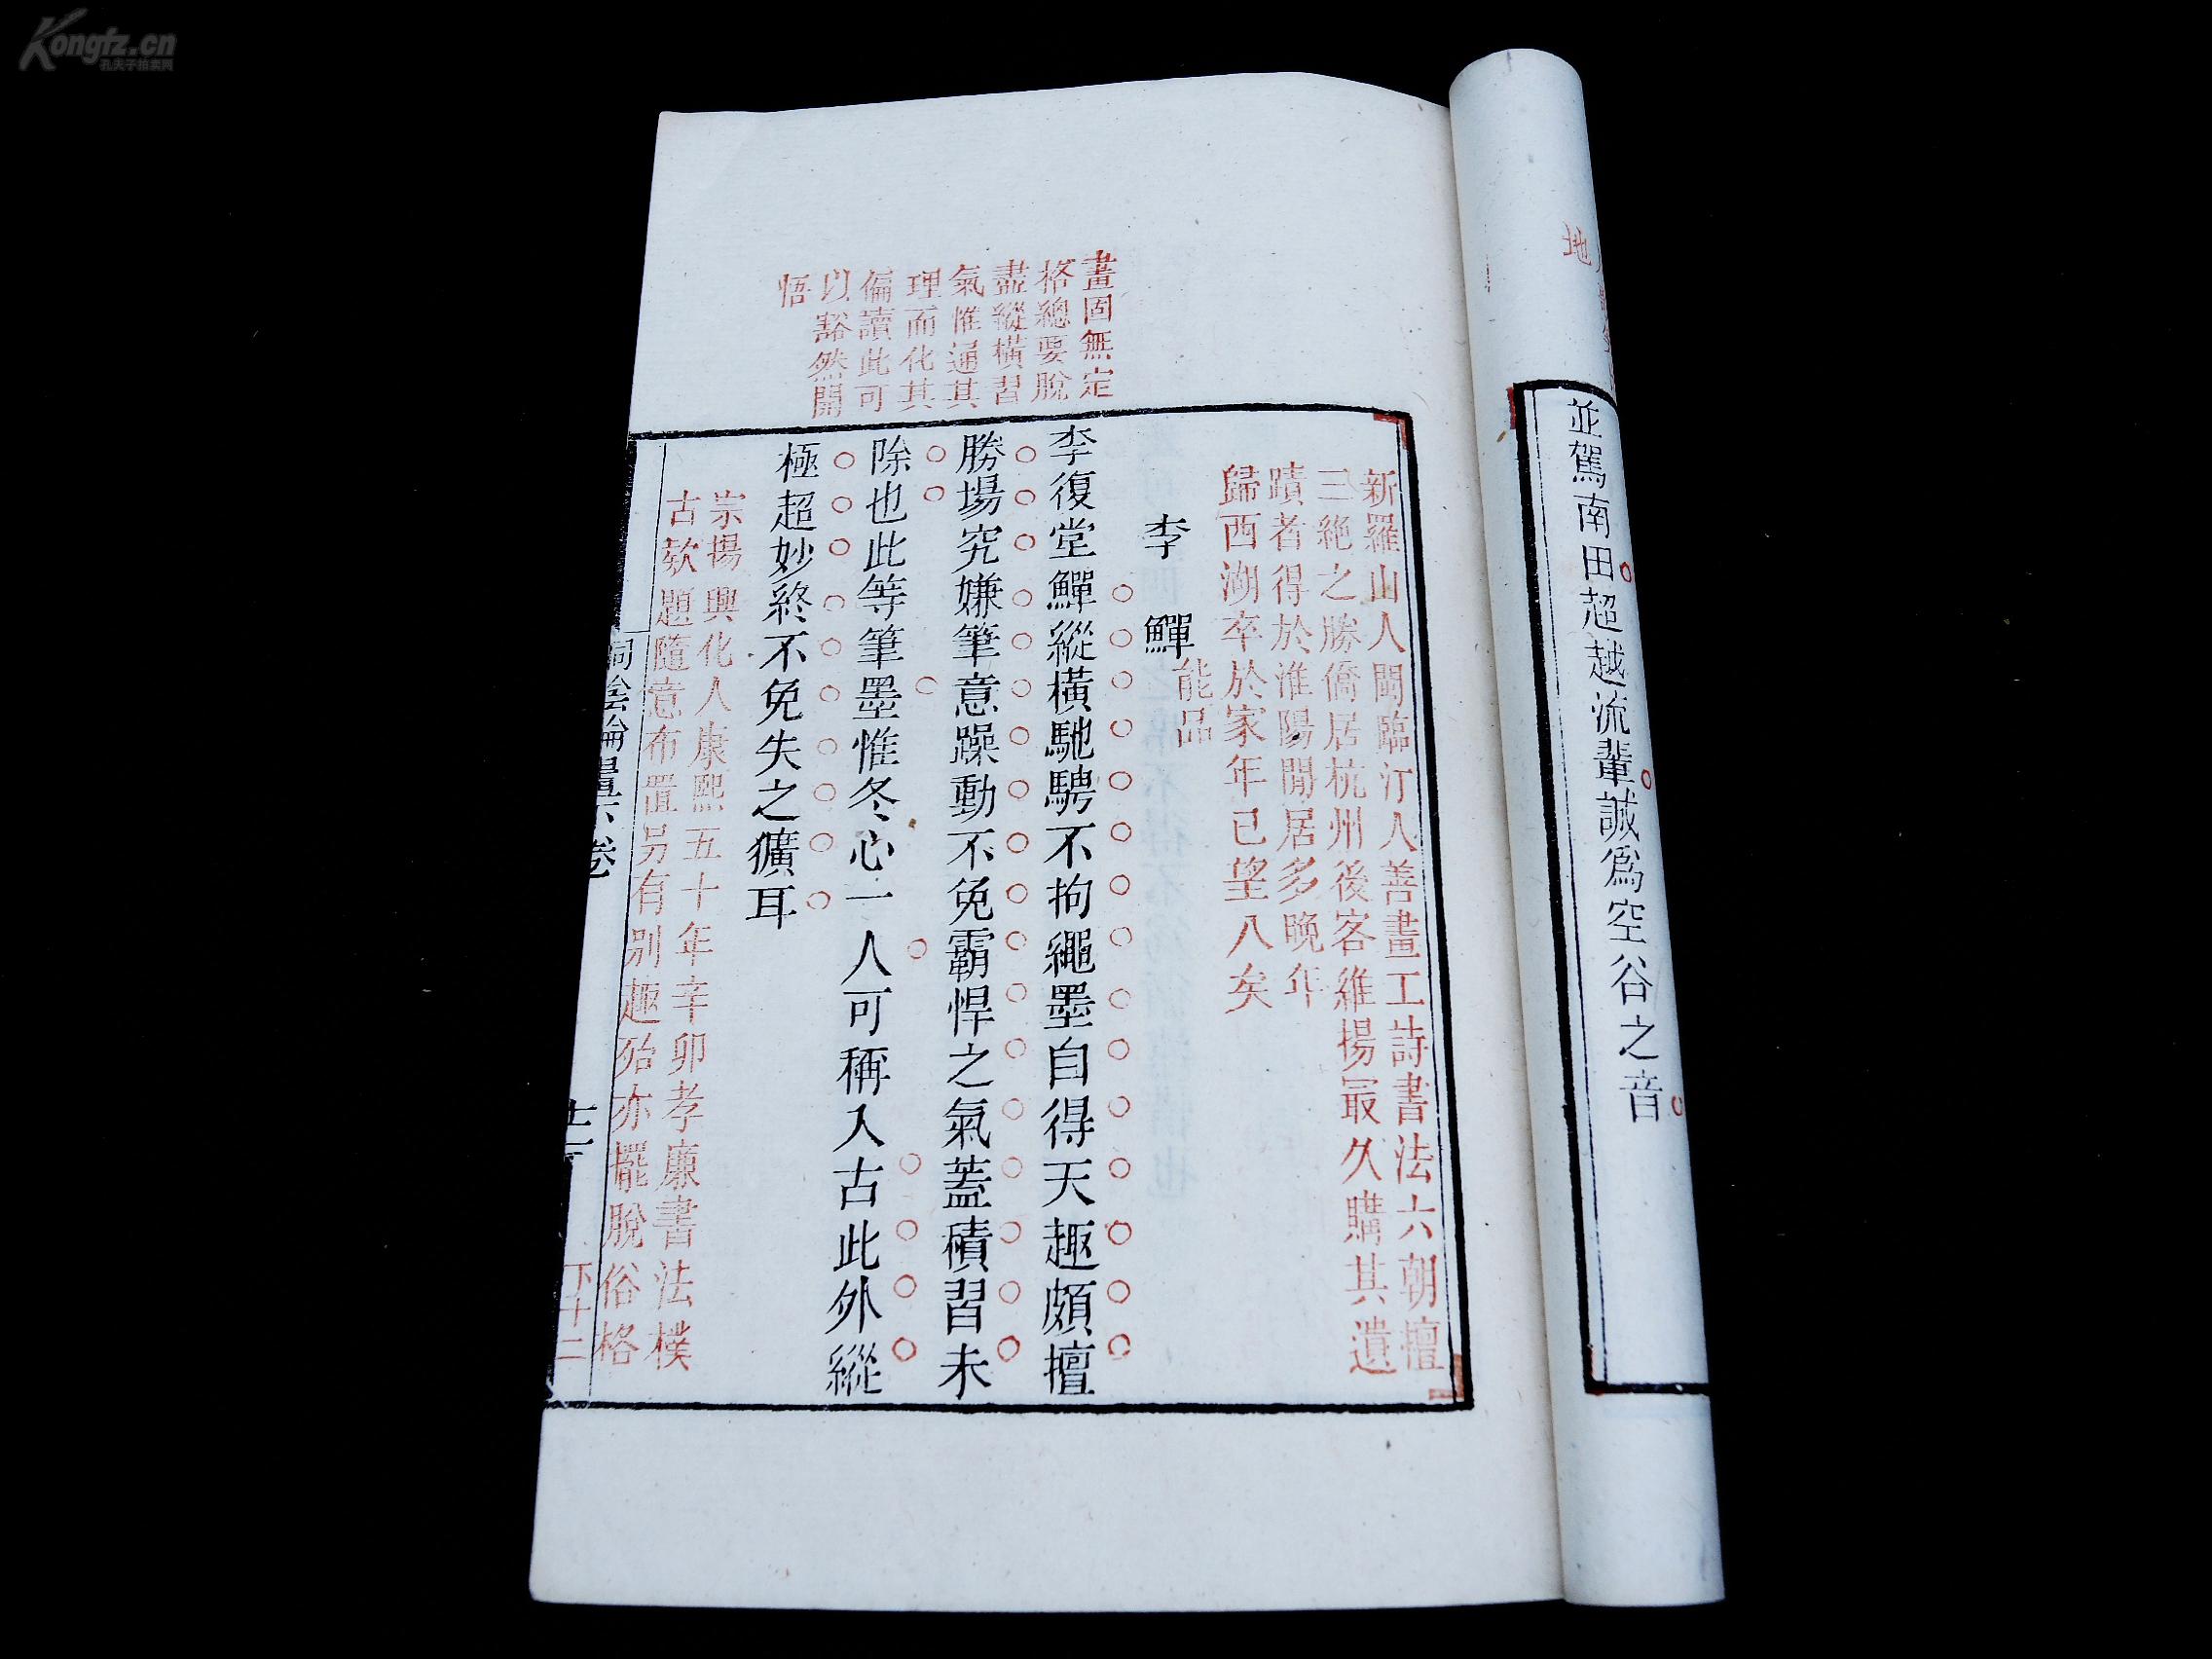 Kongfz.cn
孔夫子拍卖网
地
並駕南田超越流輩誠爲空谷之音
畫固無定
格總要脫
盡縱橫習
氣惟通其
理而化其
偏讀此可
以豁然開
悟
新羅山人閩臨汀人善畫工詩書法六朝擅
三絶之勝僑居杭州後客維揚最久購其遺
蹟者得於淮陽閒居多晚年
歸西湖卒於家年已望八矣
李鱓
能品
李復堂鱓縱橫馳騁不拘繩墨自得天趣頗擅
勝場究嫌筆意躁動不免霸悍之氣蓋磧習未
除也此等筆墨惟冬心一人可稱入古此外縱
極超妙終不免失之獷耳
宗揚興化人康熙五十年辛卯孝廉書法樸
古欵題隨意布置另有别趣殆亦擺脫俗格
桐陰論畫下卷
十二
下十二